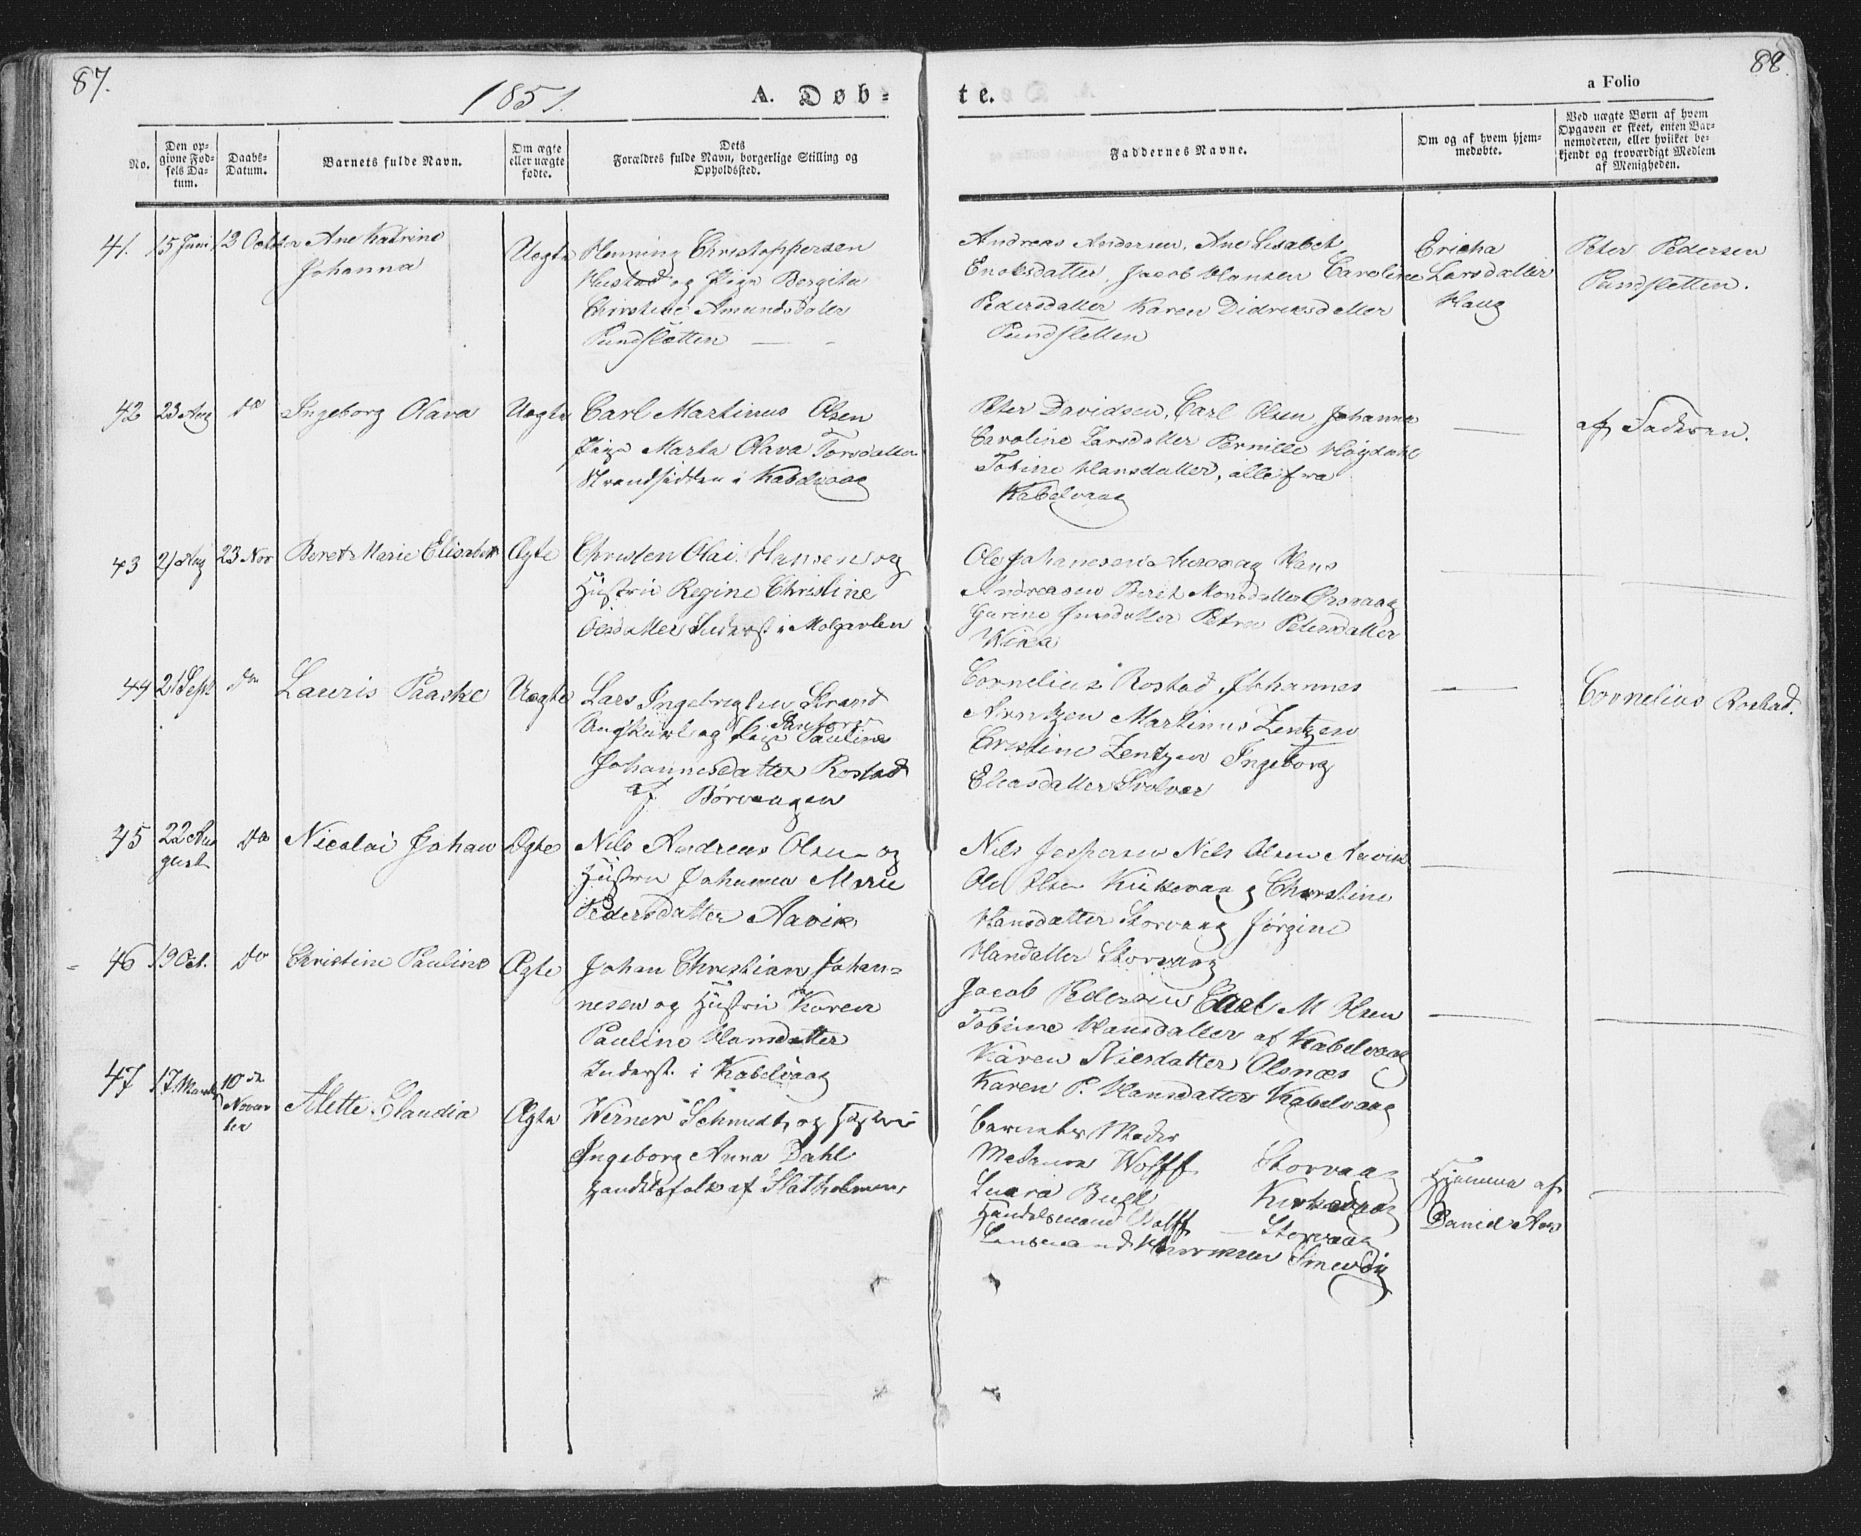 87.
1851.
A. Døb-
te.
a Folio
88.
No.
Den op-
givne Fød-
sels Da-
tum.
Daabs-
Datum.
Barnets fulde Navn.
Om ægte
eller uægte
fødte.
Dets
Forældres fulde Navn, borgerlige Stilling og
Opholdssted.
Faddernes Navne.
Om og af hvem hjem-
medøbte.
Ved uægte Børn af hvem
Opgaven er skeet, enten Bar-
nemoderen, eller hvilket be-
kjendt og troværdigt Medlem
af Menigheden.
41. 15 Juni 13 October Ane Katrine
Johanna
Uægte
Henning Christophersen
Hustad og Pige Bergita
Christine Amundsdater
Pundsletten
Andreas Andersen, Ane Lisabet
Enoksdatter, Jacob Hansen Caroline
Pedersdatter Karen Didriksdatter
Pundsletten
Ericha
Larsdatter
Haug
Peter Pedersen
Pundsletten.
42 23 Aug do Ingeborg Olava Uægte
Carl Martinus Olsen
Pige Marta Olava Torsdatter
Strandsidden i Kabelvaag
Peter Davidsen, Carl Olsen Johanna
Caroline Larsdatter Pernille Høydahl
Tobine Hansdatter, alle fra
Kabelvaag
af Faderen.
43 21 Aug 23 Nov Beret Marie Elisabeth Ægte
Christen Olai Hansen og
Hustru Regine Christine
Olsdatter Inderst i Molgavlen
Ole Johanesen Hans
Andreasen Berit Monsdatter Orsvaag
Gurine Petra Petersdatter
44 21 Sept do Lauris Paaske Uægte
Lars Ingebrigtsen Strand
Ungkarl og Pige Pauline
Johannesdatter Rostad
af Børvaagen
Cornelius Rostad, Johannes
Arntzen Martinus Lentzen
Christine Lentzen Ingeborg
Eliasdatter Svolvær
Cornelius Rostad.
45 22 Au
gust
do Nicolai Johan Ægte
Nils Andreas Olsen og
Hustru Johanna Marie
Pedersdatter Aavik
Nils Jespersen Nels Olsen Aavik
Ole Olsen Kirkevaag Christine
Hansdatter Storvaag Jørgine
Handatter Storvaag
46 19 Oct. do Christine Pauline Ægte
Johan Christian Johan-
nesen og Hustru Karen
Pauline Hansdatter
Inderst. i Kabelvaag
Jacob Pedersen Carl M Olsen
Tobine Hansdatter af Kabelvaag
Karen Nilsdatter Olsnæs
Karen P. Hansdatter Kabelvaag
47 17 Marts 10de
Novem
ber
Alette Claudia Ægte
Werner Schmidt, og Hustru
Ingeborg Anna Dahl
Handelsfolk af Slatholmen
barnets Moder
Wolff Storvaag
Kirkevaag
Handelsmand Wolff Storvaag
Lensmand
Hjemme af
Daniel